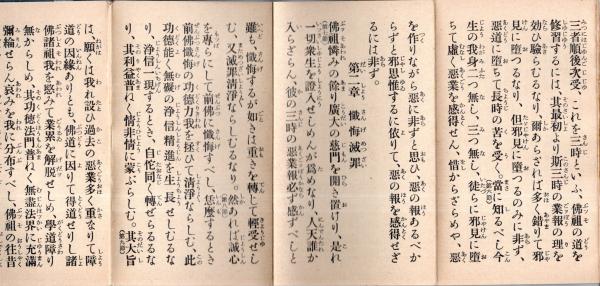 三者順後次受、これを三時といふ、佛祖の道を
修習するには、其最初より斯三時の業報の理を
效ひ驗らむるなり、爾あらざれば多く錯りて邪
見に墮つるなり、但邪見に墮つるのみに非ず、
惡道に墮ちて長時の苦を受く。當に知るべし今
生の我身二つ無し、三つ無し、徒らに邪見に墮
ちて虛く惡業を感得せん、惜からざらめや、惡
を作りながら惡に非ずと思ひ、惡の報あるべか
らずと邪思惟するに依りて、惡の報を感得せざ
るには非ず。
第二章 懺悔滅罪
佛祖憐みの餘り廣大の慈門を開き置けり、是れ
一切衆生を證入せしめんが爲めなり、人天誰か
入らざらん、彼の三時の惡業報必ず感ずべしと
雖も、懺悔するが如きは重きを轉じて輕受せし
む、又滅罪清淨ならしむるなり。然あれば誠心
を專らにして前佛に懺悔すべし、恁麼するとき
前佛懺悔の功德力我を拯ひて清淨ならしむ、此
功德能く無礙の淨信精進を生長せしむるなり、
淨信一現するとき、自佗同く轉ぜらるるな
り、其利益普ねく情非情に蒙ぶらしむ。其大旨
は、願くは我れ設ひ過去の惡業多く重なりて障
道の因緣ありとも、佛道に因りて得道せりし諸
佛諸祖我を愍みて業累を解脫せしめ、學道障り
無からしめ、其功德法門普ねく無盡法界に充滿
彌綸せらん哀みを我に分布すべし、佛祖の往昔